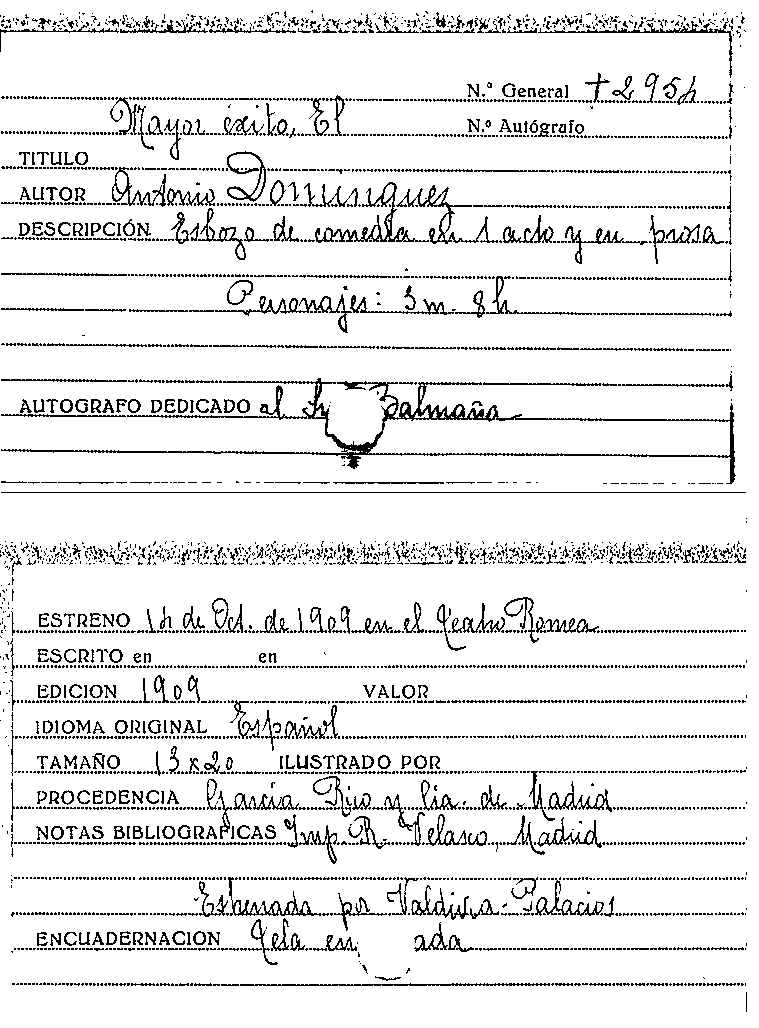 N.º General +2954
Mayor éxito, El
N.º Autógrafo
TITULO
AUTOR Antonio Dominguez
DESCRIPCIÓN Esbozo de comedia en 1 acto y en prosa
Personajes: 3 m. 8 h.
AUTOGRAFO DEDICADO al Sr Balmaña
ESTRENO 14 de Oct. de 1909 en el Teatro Romea
ESCRITO en en
EDICION 1909 VALOR
IDIOMA ORIGINAL Español
TAMAÑO 13x20 ILUSTRADO POR
PROCEDENCIA García Rico y Cia. de Madrid
NOTAS BIBLIOGRAFICAS Imp. R. Velasco, Madrid
Estrenada por Valdivia-Palacios
ENCUADERNACION Tela en ada